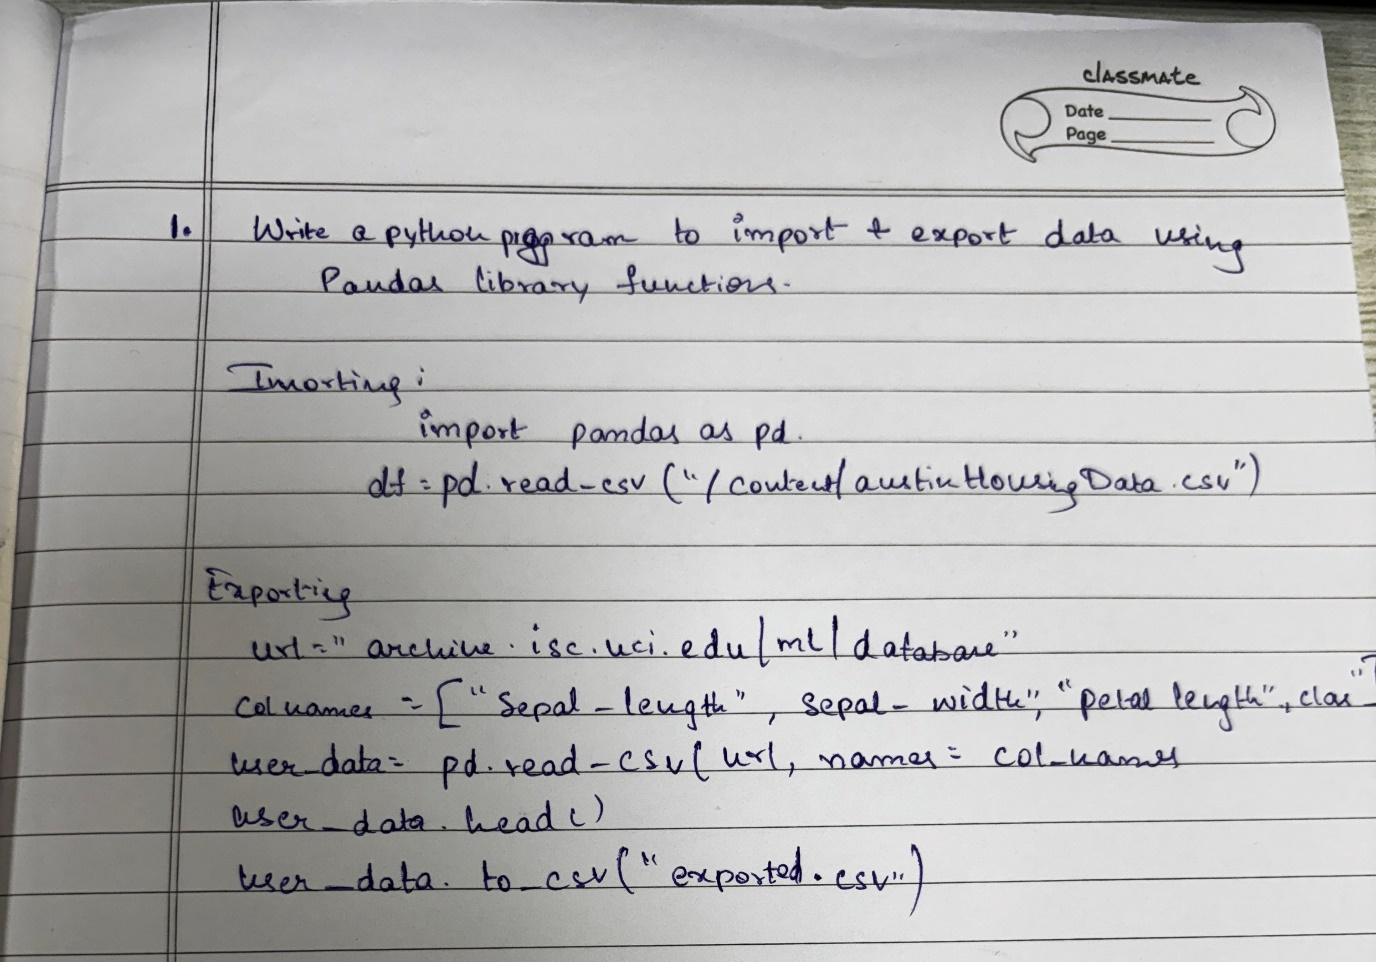 classmate
Date
Page
1. Write a python program to import & export data using
Pandas library functions.
Imorting :
import pandas as pd.
df = pd.read-csv ("/content/austinHousingData.csv")
Exporting
url = "archive.isc.uci.edu/ml/database"
colnames = ["Sepal-length", sepal-width", "petal length", clas"]
user_data = pd.read-csv( url, names = col_names
user_data.head()
user_data.to_csv("exported.csv")